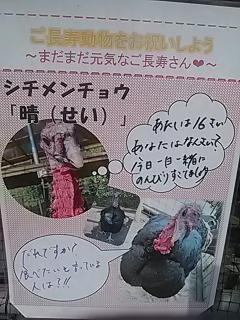 ご長寿動物をお祝いしよう
～まだまだ元気なご長寿さん❤～
シチメンチョウ
「晴（せい）」
あたしは16さい
あなたはなんさい？
今日一日一緒に
のんびりすごしましょ
だれですか？
食べたいと言っている
人は？！！